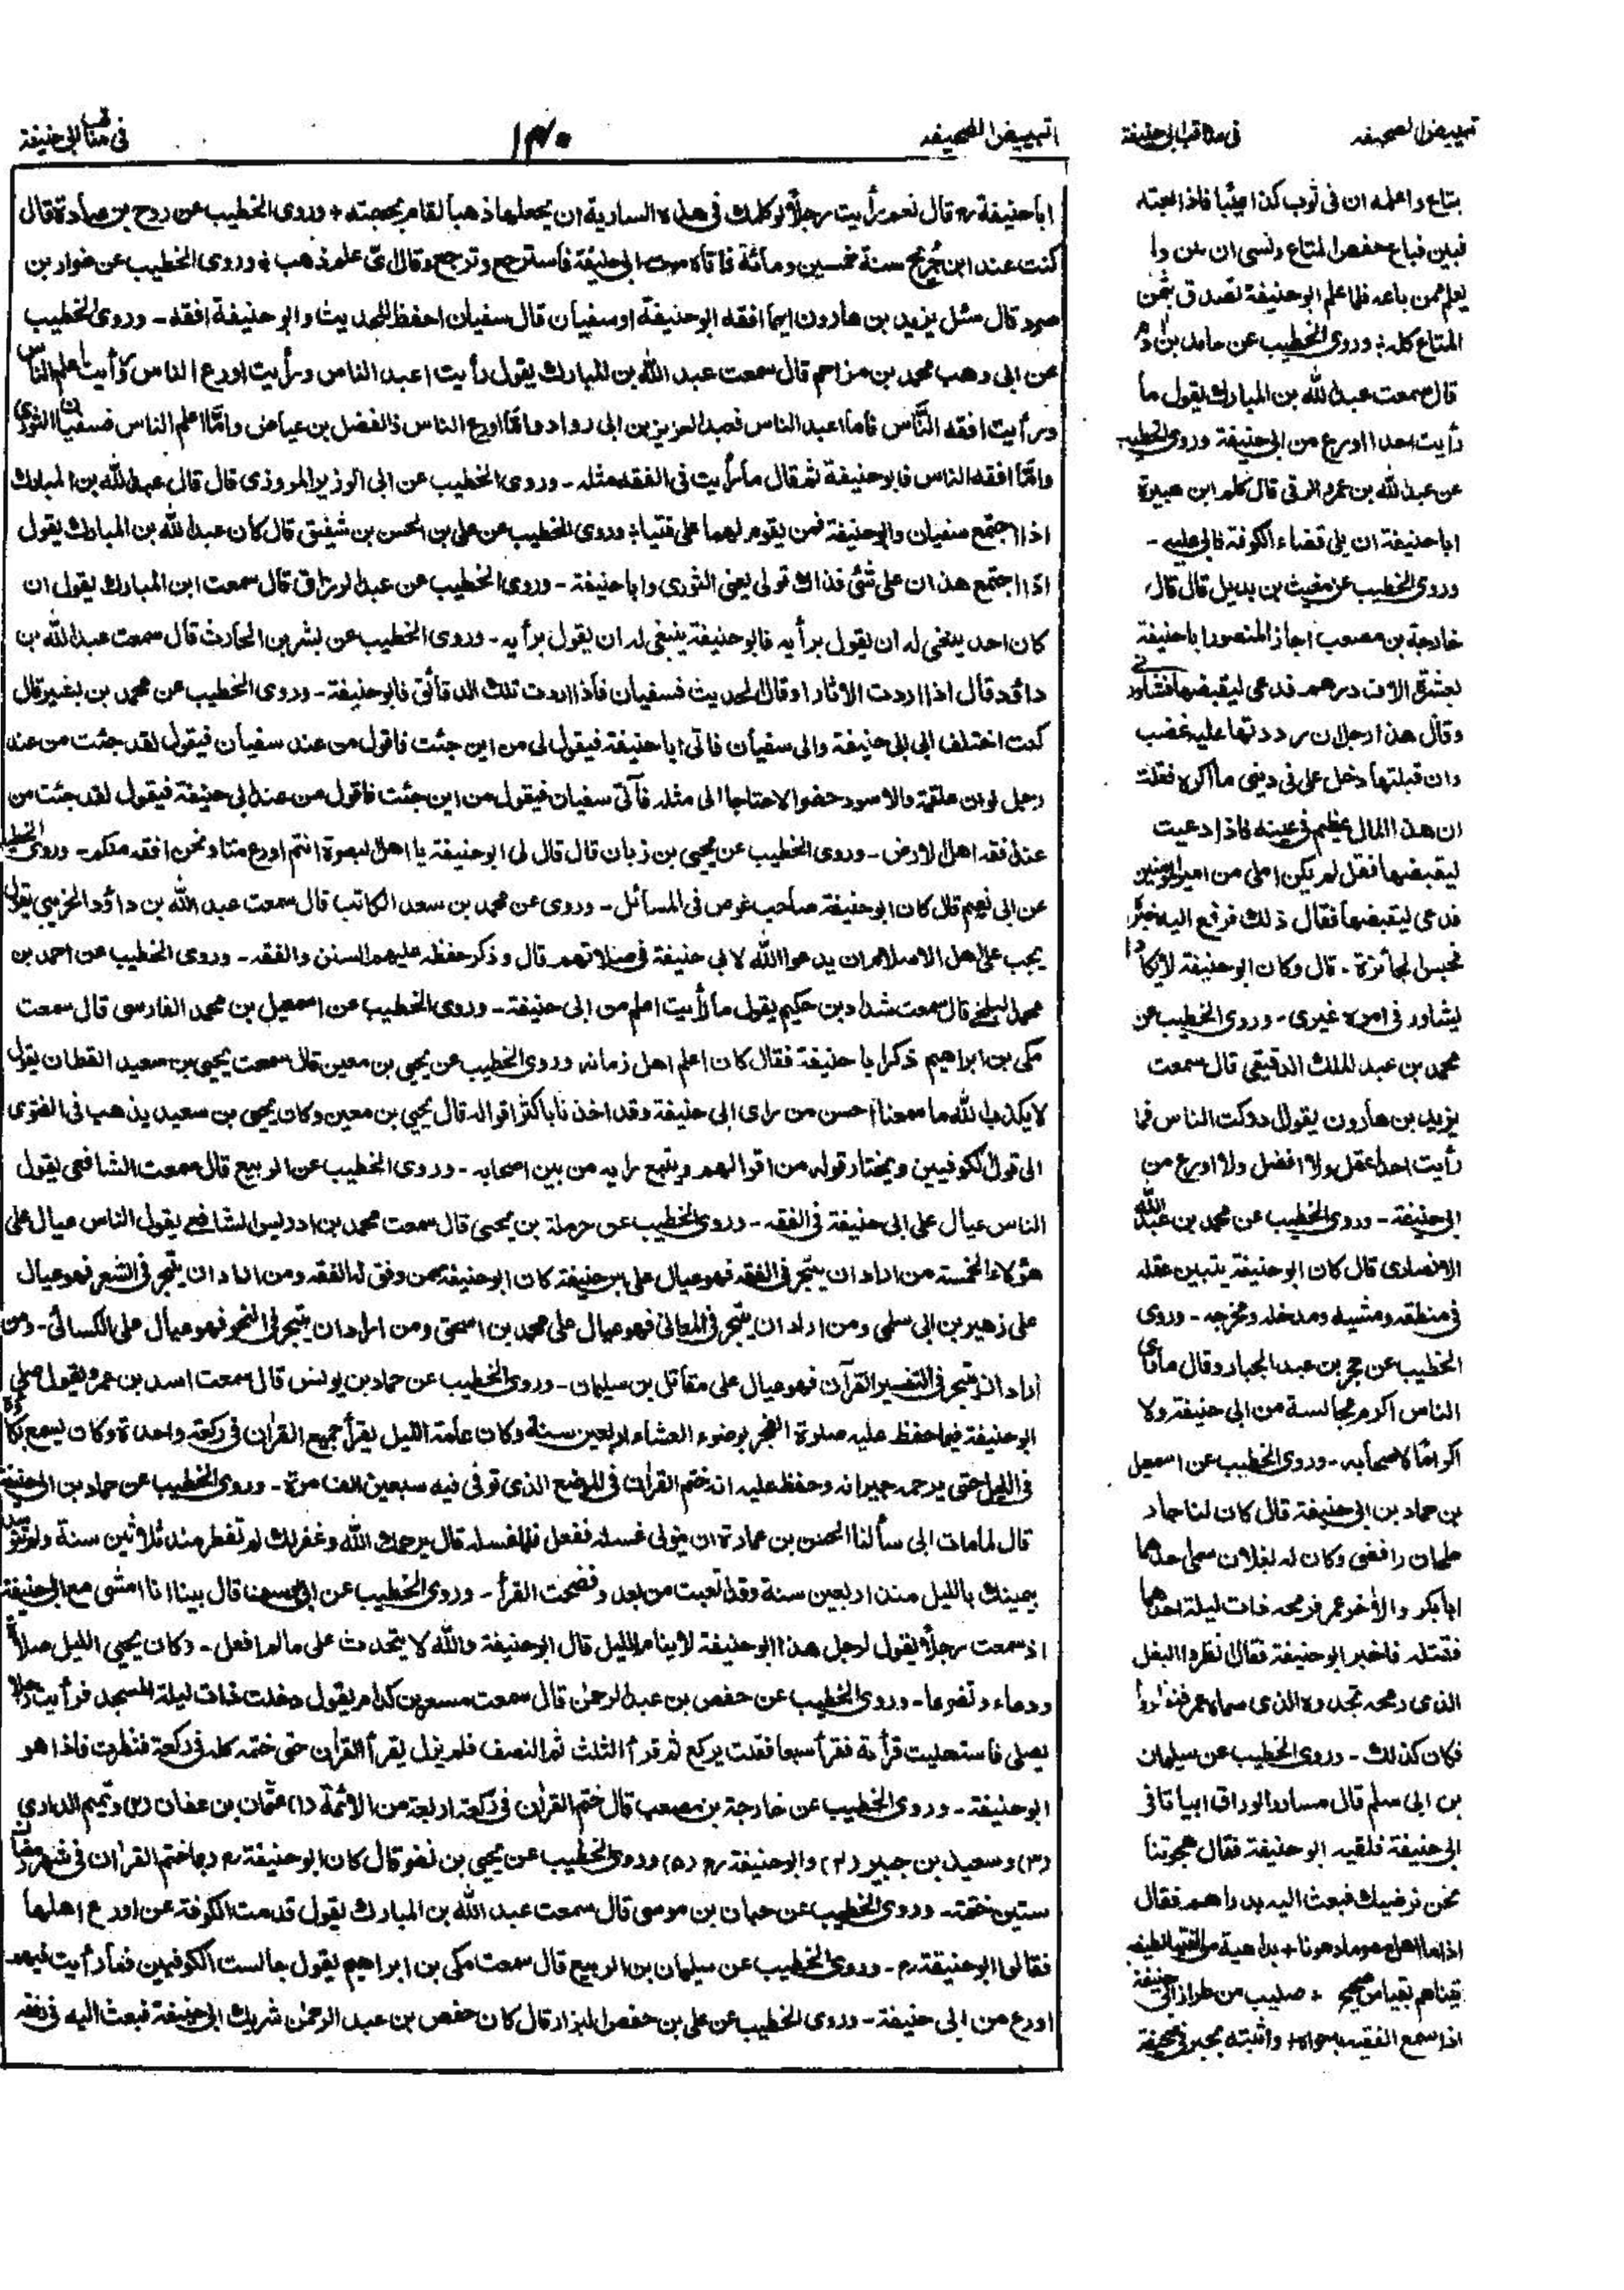 تبييض الصحيفه
في مناقب ابي حنيفة
التبييض الصحيفه
١٣٠
في مناقب ابي حنيفة
ابا حنيفة رح قال نعم رأيت رجلا لو كلمك في هذه السارية ان يجعلها ذهبا لقام بحجته + وروى الخطيب عن روح بن عبادة قال
كنت عند ابن جريج سنة خمسين ومائة فاتاه موت ابي حنيفة فاسترجع وتوجع وقال اي علم ذهب ÷ وروى الخطيب عن ضرار بن
صرد قال سئل يزيد بن هارون ايما افقه ابو حنيفة او سفيان قال سفيان احفظ للحديث وابو حنيفة افقه ـ وروى الخطيب
عن ابي وهب محمد بن مزاحم قال سمعت عبد الله بن المبارك يقول رأيت اعبد الناس ورأيت اورع الناس ورأيت اعلم الناس
ورأيت افقه الناس فاما اعبد الناس فعبد العزيز بن ابي رواد واما اورع الناس فالفضيل بن عياض واما اعلم الناس فسفيان الثوري
واما افقه الناس فابو حنيفة ثم قال ما رأيت في الفقه مثله ـ وروى الخطيب عن ابي الوزير المروزي قال قال عبد الله بن المبارك
اذا اجتمع سفيان وابو حنيفة فمن يقوم لهما على فتيا ÷ وروى الخطيب عن علي بن الحسن بن شقيق قال كان عبد الله بن المبارك يقول
اذا اجتمع هذان على شئ فذاك قولي يعني الثوري وابا حنيفة ـ وروى الخطيب عن عبد الرزاق قال سمعت ابن المبارك يقول ان
كان احد ينبغي له ان يقول برأيه فابو حنيفة ينبغي له ان يقول برأيه ـ وروى الخطيب عن بشر بن الحارث قال سمعت عبد الله بن
داؤد قال اذا اردت الاثار او قال الحديث فسفيان فاذا اردت تلك الدقائق فابو حنيفة ـ وروى الخطيب عن محمد بن بشير قال
كنت اختلف الى ابي حنيفة والى سفيان فاتي ابا حنيفة فيقول لي من اين جئت فاقول من عند سفيان فيقول لقد جئت من عند
رجل لو ان علقمة والاسود حضرا لاحتاجا الى مثله فآتي سفيان فيقول من اين جئت فاقول من عند ابي حنيفة فيقول لقد جئت من
عند افقه اهل الارض ـ وروى الخطيب عن يحيى بن زبان قال قال لي ابو حنيفة يا اهل البصرة انتم اورع منا ونحن افقه منكم ـ وروى الخطيب
عن ابي نعيم قال كان ابو حنيفة صاحب غوص في المسائل ـ وروى عن محمد بن سعد الكاتب قال سمعت عبد الله بن داؤد الخريبي يقول
يجب على اهل الاسلام ان يدعوا الله لابي حنيفة في صلاتهم قال وذكر حفظه عليهم السنن والفقه ـ وروى الخطيب عن احمد بن
محمد البلخي قال سمعت شداد بن حكيم يقول ما رأيت اعلم من ابي حنيفة ـ وروى الخطيب عن اسمعيل بن محمد الفارسي قال سمعت
مكي بن ابراهيم ذكر ابا حنيفة فقال كان اعلم اهل زمانه وروى الخطيب عن يحيى بن معين قال سمعت يحيى بن سعيد القطان يقول
لا يكذب الله ما سمعنا احسن من راي ابي حنيفة وقد اخذنا باكثر اقواله قال يحيى بن معين وكان يحيى بن سعيد يذهب في الفتوى
الى قول الكوفيين ويختار قوله من اقوالهم ويتبع رايه من بين اصحابه ـ وروى الخطيب عن الربيع قال سمعت الشافعي يقول
الناس عيال على ابي حنيفة في الفقه ـ وروى الخطيب عن حرملة بن يحيى قال سمعت محمد بن ادريس الشافعي يقول الناس عيال على
هؤلاء الخمسة من اراد ان يتبحر في الفقه فهو عيال على ابي حنيفة كان ابو حنيفة ممن وفق له الفقه ومن اراد ان يتبحر في الشعر فهو عيال
على زهير بن ابي سلمى ومن اراد ان يتبحر في المغازي فهو عيال على محمد بن اسحق ومن اراد ان يتبحر في النحو فهو عيال على الكسائي ـ ومن
اراد ان يتبحر في التفسير القرآن فهو عيال على مقاتل بن سيلمان ـ وروى الخطيب عن حماد بن يونس قال سمعت اسد بن عمرو يقول صلى
ابو حنيفة فيما حفظ عليه صلوة الفجر بوضوء العشاء اربعين سنة وكان عامة الليل يقرأ جميع القرآن في ركعة واحدة وكان يسمع بكاؤه
في الليل حتى يرحمه جيرانه وحفظ عليه انه ختم القرآن في الموضع الذي توفي فيه سبعين الف مرة ـ وروى الخطيب عن حماد بن ابي حنيفة
قال لما مات ابي سألنا الحسن بن عمارة ان يتولى غسله ففعل فلما غسله قال يرحمك الله وغفر لك لم تفطر منذ ثلاثين سنة ولم تتوسد
يمينك بالليل منذ اربعين سنة وقد اتعبت من بعدك وفضحت القرأ ـ وروى الخطيب عن ابي يوسف قال بينا انا امشي مع ابي حنيفة
اذ سمعت رجلا يقول لرجل هذا ابو حنيفة لا ينام الليل قال ابو حنيفة والله لا يتحدث على مالم افعل ـ وكان يحيى الليل صلاة
ودعاء وتضرعا ـ وروى الخطيب عن حفص بن عبد الرحمن قال سمعت مسعر بن كدام يقول دخلت ذات ليلة المسجد فرأيت رجلا
يصلي فاستحليت قرأة فقرأ سبعا فقلت يركع ثم قرأ الثلث ثم النصف فلم يزل يقرأ القرآن حتى ختمه كله في ركعة فنظرت فاذا هو
ابو حنيفة ـ وروى الخطيب عن خارجة بن مصعب قال ختم القرآن في ركعة اربعة من الائمة (١) عثمان بن عفان (٢) وتميم الداري
(٣) وسعيد بن جبير (٤) وابو حنيفة رح (٥) وروى الخطيب عن يحيى بن نضر قال كان ابو حنيفة رح ربما ختم القرآن في شهر رمضان
ستين ختمة ـ وروى الخطيب عن حبان بن موسى قال سمعت عبد الله بن المبارك يقول قدمت الكوفة عن اورع اهلها
فقالوا ابو حنيفة رح ـ وروى الخطيب عن سليمان بن الربيع قال سمعت مكي بن ابراهيم يقول جالست الكوفيين فما رأيت فيهم
اورع من ابي حنيفة ـ وروى الخطيب عن علي بن حفص البزار قال كان حفص بن عبد الرحمن شريك ابي حنيفة فبعث اليه في رفقة
بتاع واعلمه ان في ثوب كذا عيبا فاذا بعته
فبين فباع حفص المتاع ونسى ان
يعلم ممن باعه فلما علم ابو حنيفة تصدق بثمن
المتاع كله ÷ وروى الخطيب عن حامد بن آدم
قال سمعت عبد الله بن المبارك يقول ما
رأيت احدا اورع من ابي حنيفة وروى الخطيب
عن عبد الله بن عمرو الرقي قال كلم ابن هبيرة
ابا حنيفة ان يلي قضاء الكوفة فابى عليه ـ
وروى الخطيب عن مغيث بن بديل قال قال
خارجة بن مصعب اجاز المنصور ابا حنيفة
بعشرة الاف درهم فدعى ليقبضها فشاورني
وقال هذا رجل ان رددتها عليه غضب
وان قبلتها دخل على في ديني ما اكره فقلت
ان هذا المال عظيم في عينه فاذا دعيت
ليقبضها فقل لم يكن املي من امير المؤمنين
فدعى ليقبضها فقال ذلك فرفع اليه خبره
فحبس الجائزة ـ قال وكان ابو حنيفة لا يكاد
يشاور في امره غيري ـ وروى الخطيب عن
محمد بن عبد الملك الدقيقي قال سمعت
يزيد بن هارون يقول ادركت الناس فما
رأيت احدا اعقل ولا افضل ولا اورع من
ابي حنيفة ـ وروى الخطيب عن محمد بن عبد الله
الانصاري قال كان ابو حنيفة يتبين عقله
في منطقه ومشيه ومدخله ومخرجه ـ وروى
الخطيب عن حجر بن عبد الجبار وقال ما رأى
الناس اكرم مجالسة من ابي حنيفة ولا
اكراما لاصحابه ـ وروى الخطيب عن اسمعيل
بن حماد بن ابي حنيفة قال كان لنا جار
طحان رافضي وكان له بغلان سمى احدهما
ابا بكر والآخر عمر فرمحه ذات ليلة احدهما
فقتله فاخبر ابو حنيفة فقال انظروا البغل
الذي رمحه تجدوه الذي سماه عمر فنظروا
فكان كذلك ـ وروى الخطيب عن سيلمان
بن ابي سلم قال مساور الوراق ابياتا في
ابي حنيفة فلقيه ابو حنيفة فقال هجوتنا
نحن نرضيك فبعث اليه بدراهم فقال
اذا ما اهل + بداهية من الفتيا لطيفه
صحيح + صليب من طراز ابي حنيفة
اذا سمع الفقيه + واثبته بحبر في صحيفة